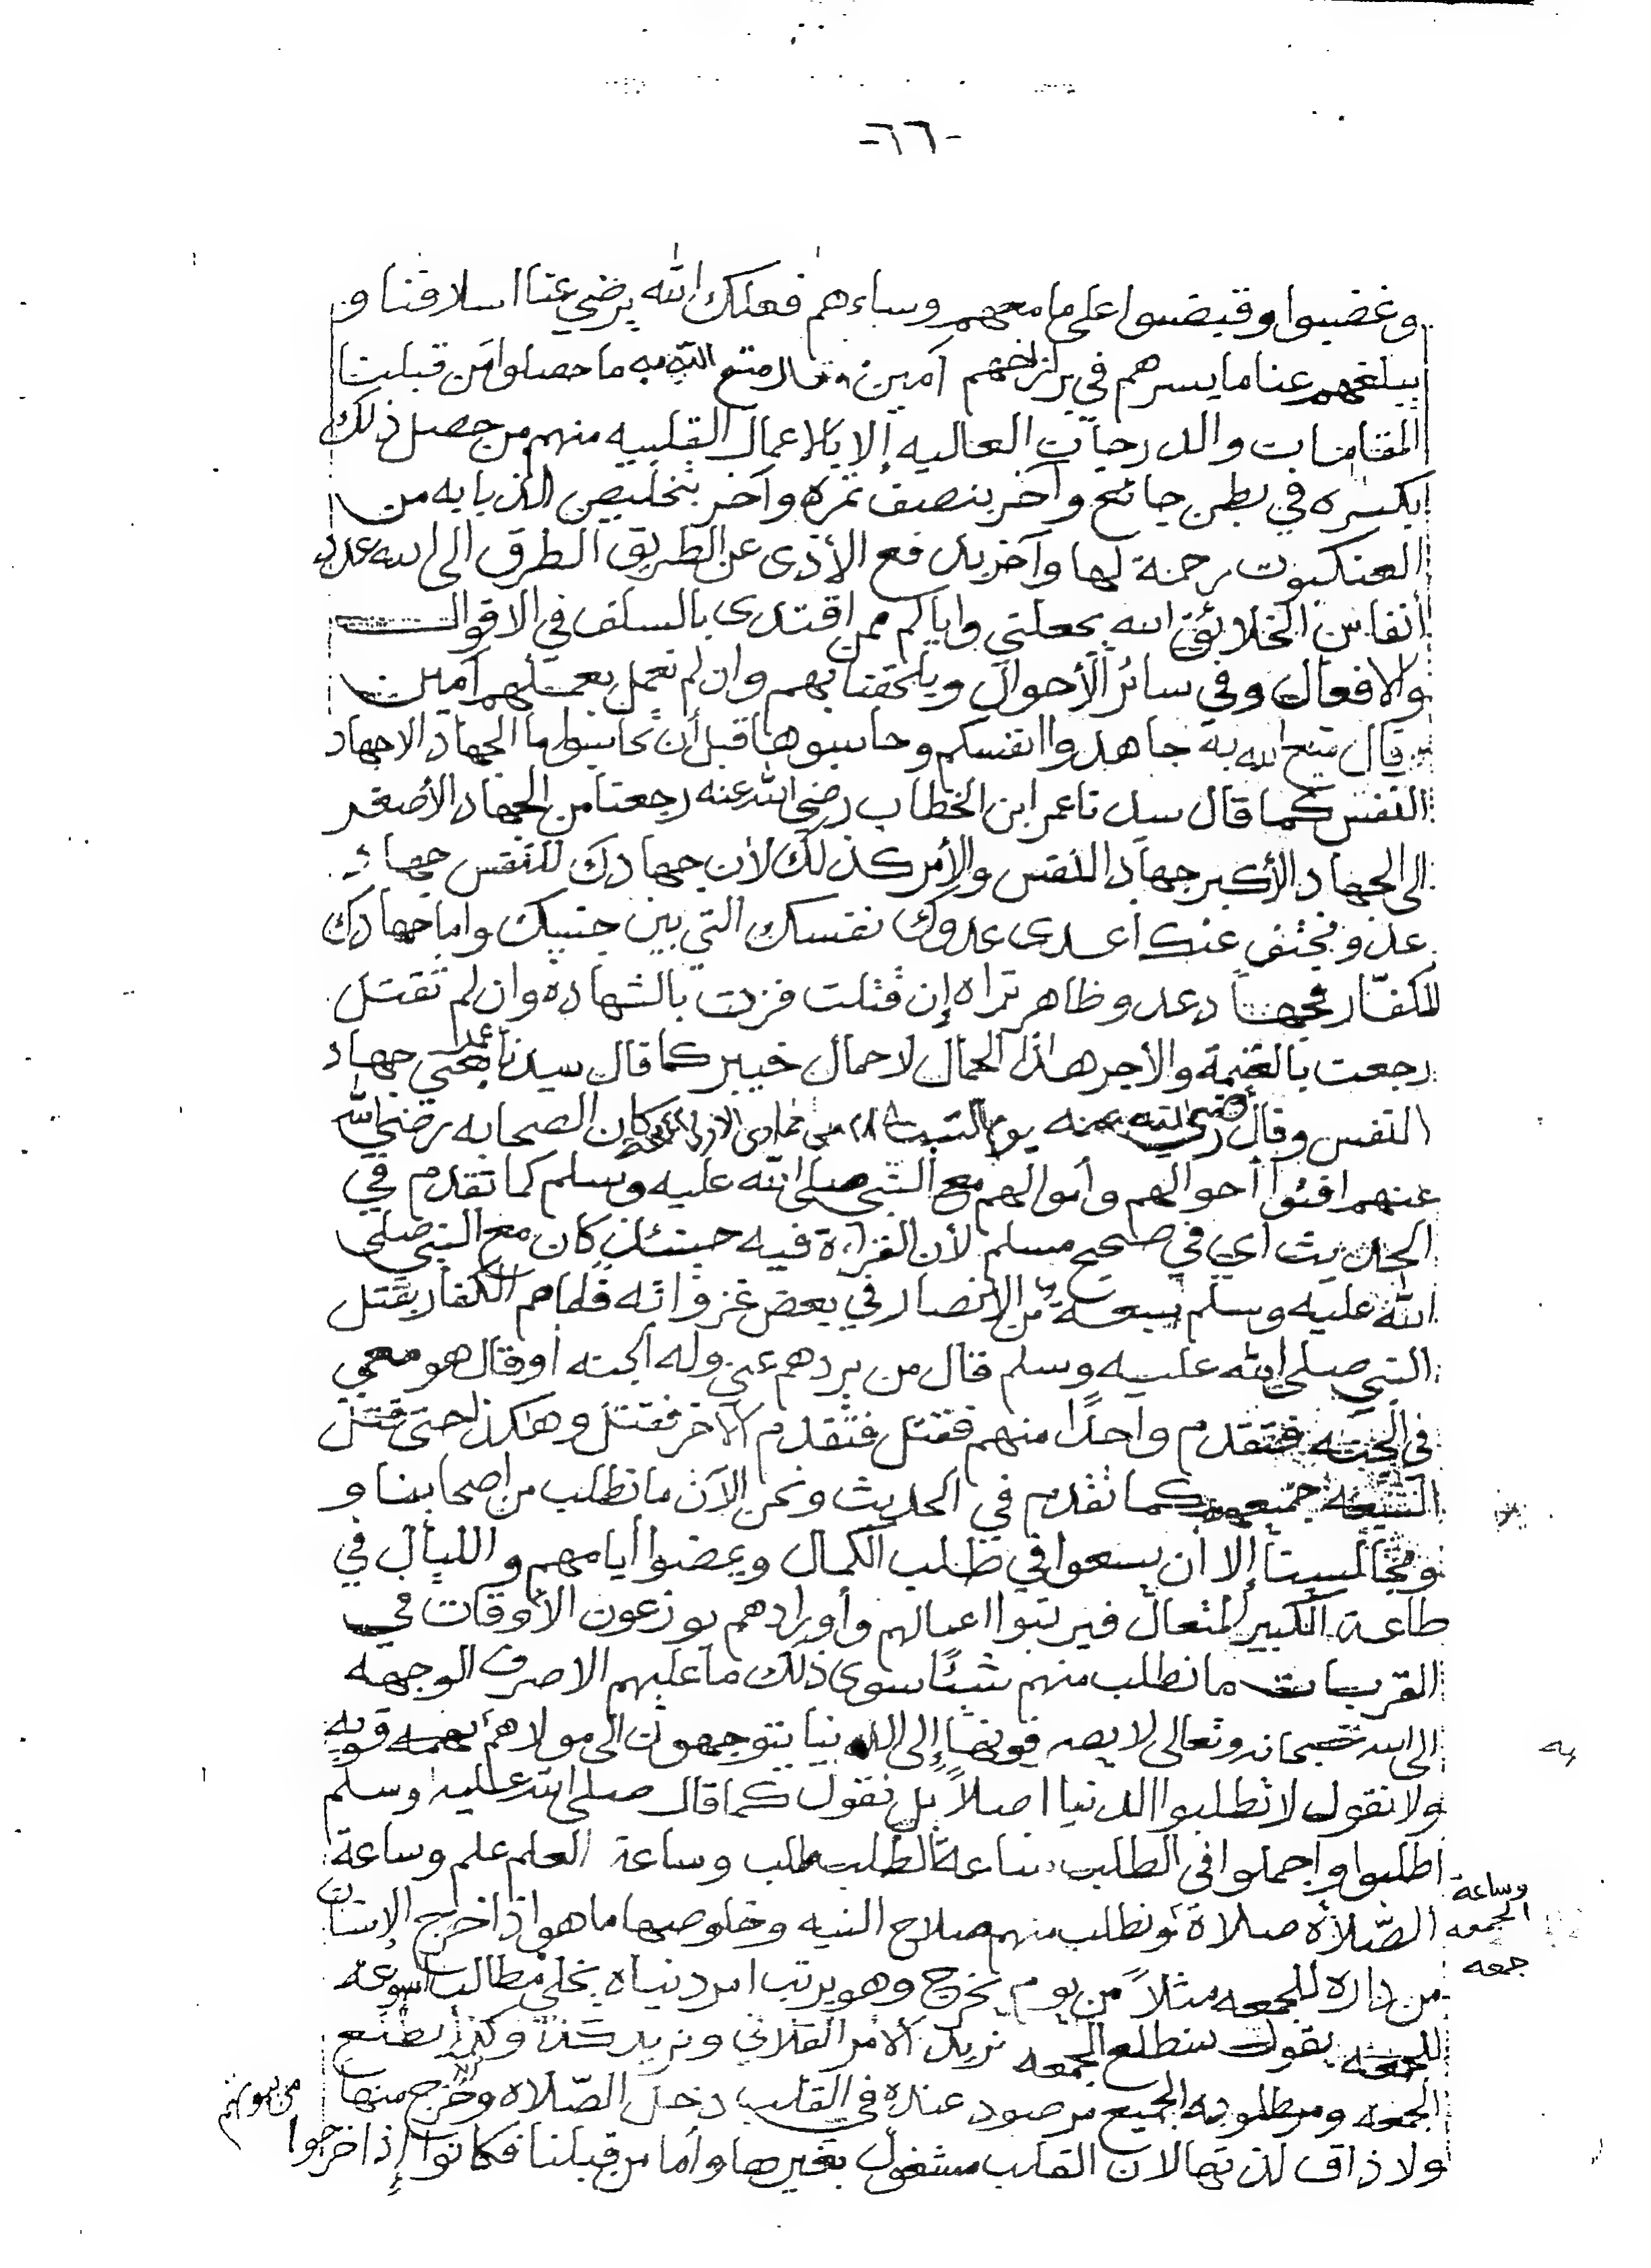 -٦٦-
وغضبوا وقبضوا على ما معهم وساءهم فعلك الله يرضي عنا اسلافنا و
يبلغهم عنا ما يسرهم في برازخهم آمين وقال متع الله به ما حصلوا من قبلنا
المقامات والدرجات العاليه إلا بالاعمال القلبيه منهم من حصل ذلك
بكسره في بطن جائع وآخر بنصف تمره وآخر بتخليص الذبابه من
العنكبوت رحمة لها وآخر بدفع الأذى عن الطريق الطرق الى الله عدد
أنفاس الخلائق الله يجعلني واياكم ممن اقتدى بالسلف في الاقوال
والافعال وفي سائر الأحوال ويلحقنا بهم وان لم نعمل بعملهم آمين
وقال متع الله به جاهدوا انفسكم وحاسبوها قبل أن تحاسبوا ما الجهاد الاجهاد
النفس كما قال سيدنا عمر ابن الخطاب رضي الله عنه رجعنا من الجهاد الأصغر
الى الجهاد الأكبر جهاد النفس والأمر كذلك لأن جهادك للنفس جهاد
عدو مختف عنك اعدى عدوك نفسك التي بين جنبيك واما جهادك
للكفّار فجهاد عدو ظاهر تراه إن قتلت فزت بالشهاده وان لم تقتل
رجعت بالغنيمة والأجر هاذا الحمال لا حمال خيبر كما قال سيدنا عمر يعني جهاد
النفس وقال رضي الله عنه يوم السبت ٢٨ من جمادى الاولى كان الصحابه رضي الله
عنهم افنوا أحوالهم وأموالهم مع النبي صلى الله عليه وسلم كما تقدم في
الحديث أي في صحيح مسلم لأن القراءة فيه حينئذٍ كان مع النبي صلى
الله عليه وسلم سبعة من الانصار في بعض غزواته فلما هم الكفار بقتل
النبي صلى الله عليه وسلم قال من يردهم عني وله الجنه أو قال هو معي
في الجنه فتقدم واحدًا منهم فقتل فتقدم الآخر فقتل وهاكذا حتى قتل
السبعه جميعهم كما تقدم في الحديث ونحن الآن ما نطلب من اصحابنا و
ومجالسينا إلا أن يسعوا في طلب الكمال ويمضوا أيامهم والليال في
طاعة الكبير المتعال فيرتبوا اعمالهم وأورادهم يوزعون الأوقات في
القربات ما نطلب منهم شيئًا سوى ذلك ما عليهم الا صرف الوجهه
الى الله سبحانه وتعالى لا يصرفونها إلى الدنيا يتوجهون الى مولاهم بهمه قويه
ولا نقول لا تطلبوا الدنيا اصلاً بل نقول كما قال صلى الله عليه وسلم
اطلبوا واجملوا في الطلب ساعة الطلب طلب وساعة العلم علم وساعة
الصّلاة صلاة وساعة الجمعه جمعه ونطلب منهم صلاح النيه وخلوصها ما هو اذا خرج الإنسان
من داره للجمعه مثلاً من يوم يخرج وهو يرتب امر دنياه يخلي مطالب اسبوعه
للجمعه يقول سنطلع الجمعه نريد الأمر الفلاني ونريد كذا وكذا نصنع
الجمعه ومطلوبه الجميع مرصود عنده في القلب دخل الصّلاه وخرج منها
ولا ذاق لذتها لان القلب مشغول بغيرها وأما من قبلنا فكانوا إذا خرجوا من بيوتهم